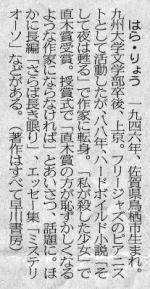 はら・りょう
一九四六年、佐賀県鳥栖市生まれ。
九州大学文学部卒後、上京。フリージャズのピアニス
トとして活動したが、八八年、ハードボイルド小説「そ
して夜は甦る」で作家に転身。「私が殺した少女」で
直木賞受賞。授賞式で「直木賞の方が恥ずかしくなる
ような作家にならなければ」とあいさつ、話題に。ほ
かに長編「さらば長き眠り」、エッセー集「ミステリ
オーソ」などがある。（著作はすべて早川書房）